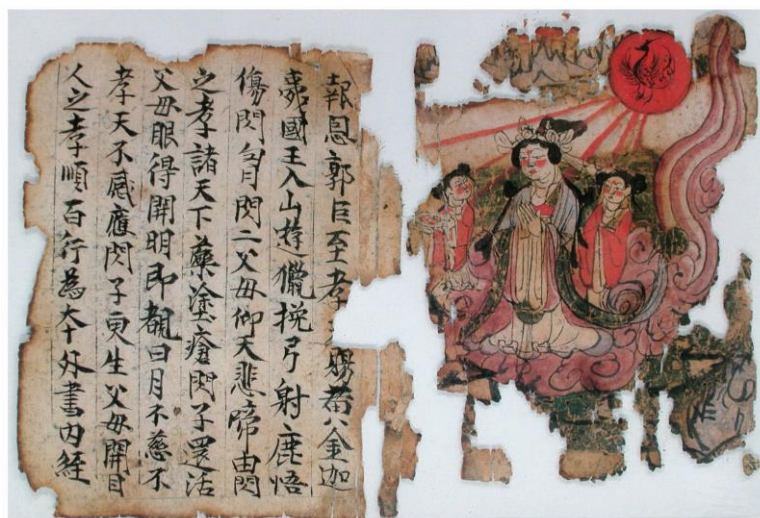 報恩郭巨至孝賜黄金迦
夷國王入山遊獵挽弓射鹿悟
傷閃胷閃二父母仰天悲啼由閃
之孝諸天下藥塗瘡閃子還活
父母眼得開明即覩日月不慈不
孝天不感應閃子更生父母開目
人之孝順百行為夲外書內經